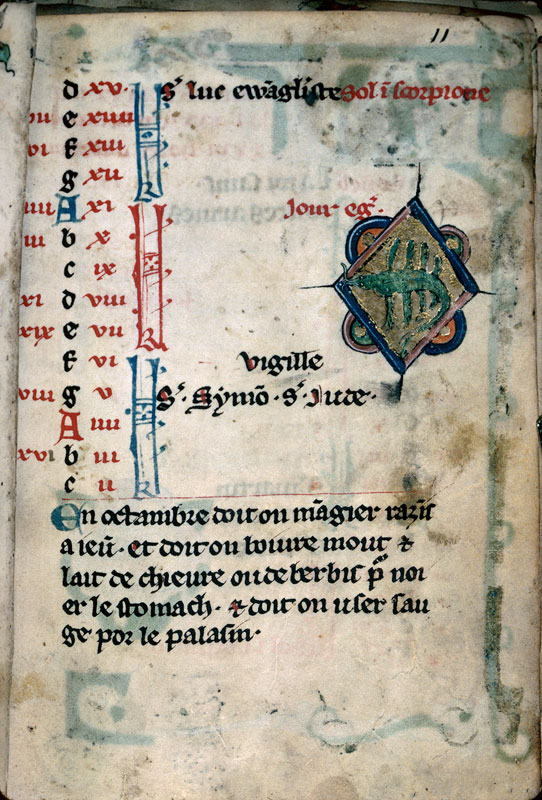 11
d xv. Kl s' luc ewãgliste Sol ĩ scorpione
vii e xiiii
vi f xiii
g xii
iiii A xi Jour eg'.
iii b x
c ix
xi d viii
xix e vii
f vi vigille
viii g v s'. Symõ. s'. Jude.
A iiii
xvi b iii
c ii
En octambre doit on mãgier razĩs
a ieũ. et doit on boiure mout &
lait de chieure ou de berbis p̃ noi
er le stomach. & doit on user sau
ge por le palasin.